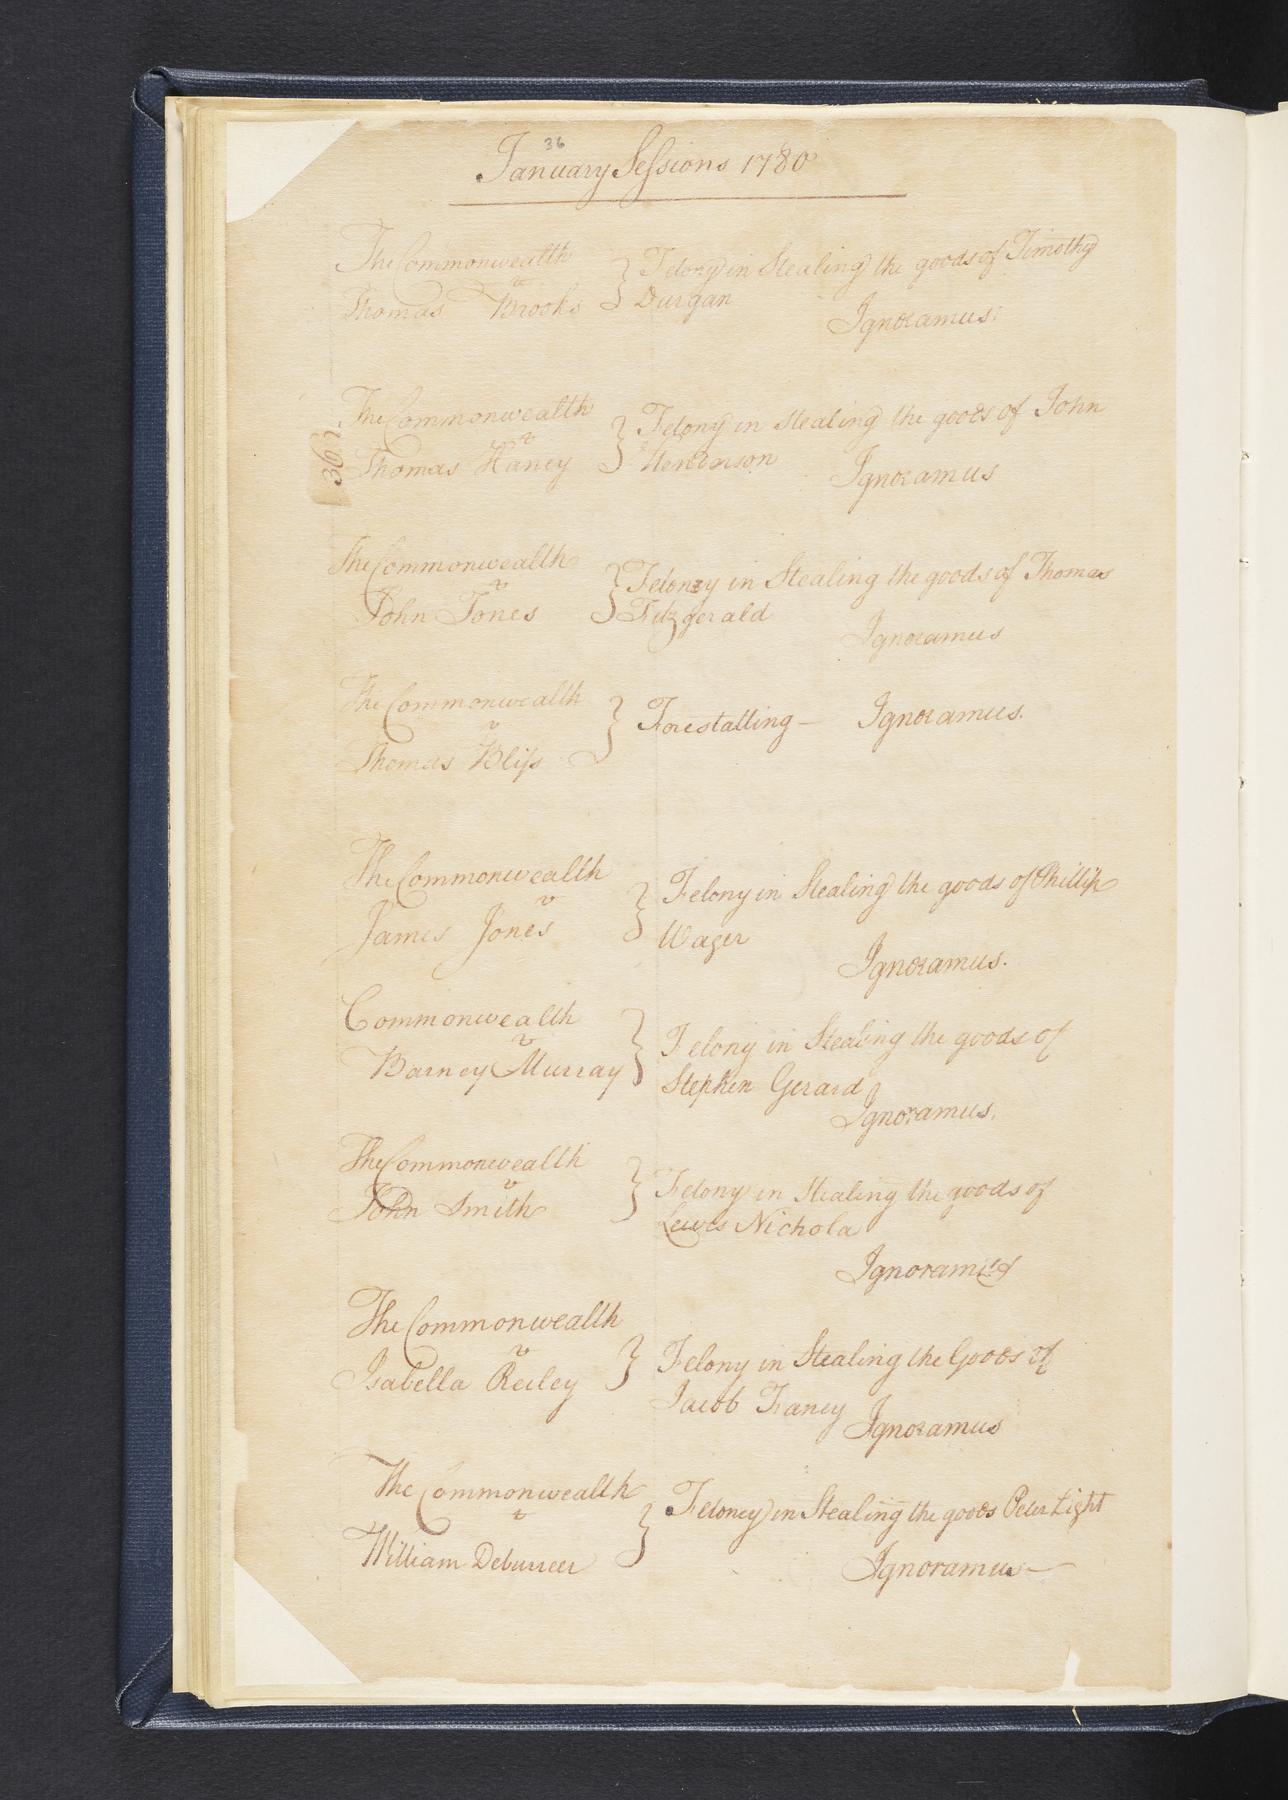 36
January Sessions 1780
The Commonwealth
v
Thomas Brooks
Felony in Stealing the goods of Timothy
Durgan
Ignoramus.
The Commonwealth
v
Thomas Haney
Felony in Stealing the goods of John
Ignoramus
The Commonwealth
v
John Jones
Felony in Stealing the goods of Thomas
Fitzgerald
Ignoramus
The Commonwealth
v
Thomas Bliss
Forestalling — Ignoramus.
The Commonwealth
v
James Jones
Felony in Stealing the goods of Phillip
Wager
Ignoramus.
Commonwealth
v
Barney Murray
Felony in Stealing the goods of
Stephen Gerard
Ignoramus.
The Commonwealth
v
John Smith
Felony in Stealing the goods of
Lewes Nichola
Ignoramus
The Commonwealth
v
Isabella Reiley
Felony in Stealing the Goods of
Jacob Franey
Ignoramus
The Commonwealth
v
William Deburreer
Feloney in Stealing the goods Peter Light
Ignoramus —